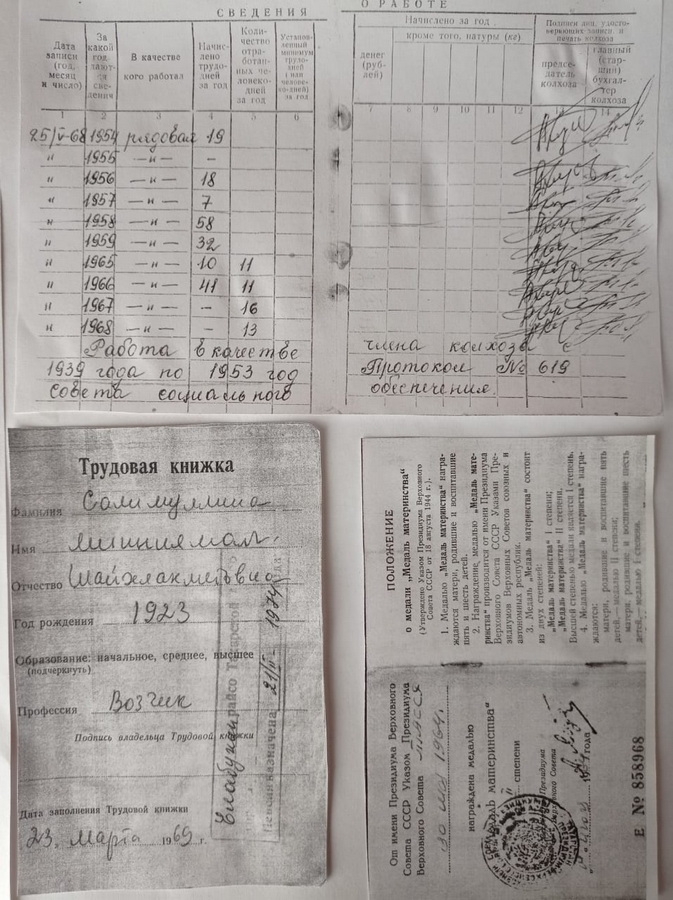 СВЕДЕНИЯ
О РАБОТЕ
Дата записи (год, месяц и число)
За какой год дают-ся све-дения
В качестве кого работал
Начис-лено трудо-дней за год
Коли-чество отра-ботан-ных че-ловеко-дней за год
Установ-ленный минимум трудо-дней (или человеко-дней) за год
Начислено за год
денег (руб-лей)
кроме того, натуры (кг)
Подписи лиц, удосто-веряющих записи, и печать колхоза
предсе-датель колхоза
главный (стар-ший) бухгал-тер колхоза
1 2 3 4 5 6
7 8 9 10 11 12 13 14
25/V-68 1954 рядовая 19
" 1955 —"— -
" 1956 —"— 18
" 1957 —"— 7
" 1958 —"— 58
" 1959 —"— 32
" 1965 —"— 10 11
" 1966 —"— 41 11
" 1967 —"— - 16
" 1968 —"— - 13
Работа в качестве члена колхоза с
1939 года по 1953 год Протокол № 619
совета социального обеспечения.
Трудовая книжка
Фамилия Салимуллина
Имя
Отчество
Год рождения 1923
Образование: начальное, среднее, высшее
(подчеркнуть)
Профессия Возчик
Подпись владельца Трудовой книжки
Дата заполнения Трудовой книжки
23, марта 1969 г.
Пенсия назначена
ПОЛОЖЕНИЕ
о медали „Медаль материнства"
(Утверждено Указом Президиума Верховного
Совета СССР от 18 августа 1944 г.).
1. Медалью „Медаль материнства" награ-
ждаются матери, родившие и воспитавшие
пять и шесть детей.
2. Награждение медалью „Медаль мате-
ринства" производится от имени Президиума
Верховного Совета СССР Указами Пре-
зидиумов Верховных Советов союзных и
автономных республик.
3. Медаль „Медаль материнства" состоит
из двух степеней:
„Медаль материнства" I степени;
„Медаль материнства" II степени.
Высшей степенью медали является I степень.
4. Медалью „Медаль материнства" награ-
ждаются:
матери, родившие и воспитавшие пять
детей,—медалью II степени;
матери, родившие и воспитавшие шесть
детей,—медалью I степени.
От имени Президиума Верховного
Совета СССР Указом Президиума
Верховного Совета
1964г.
награждена медалью
„МЕДАЛЬ МАТЕРИНСТВА"
степени
Президиума
Верховного Совета
года
Е № 858968